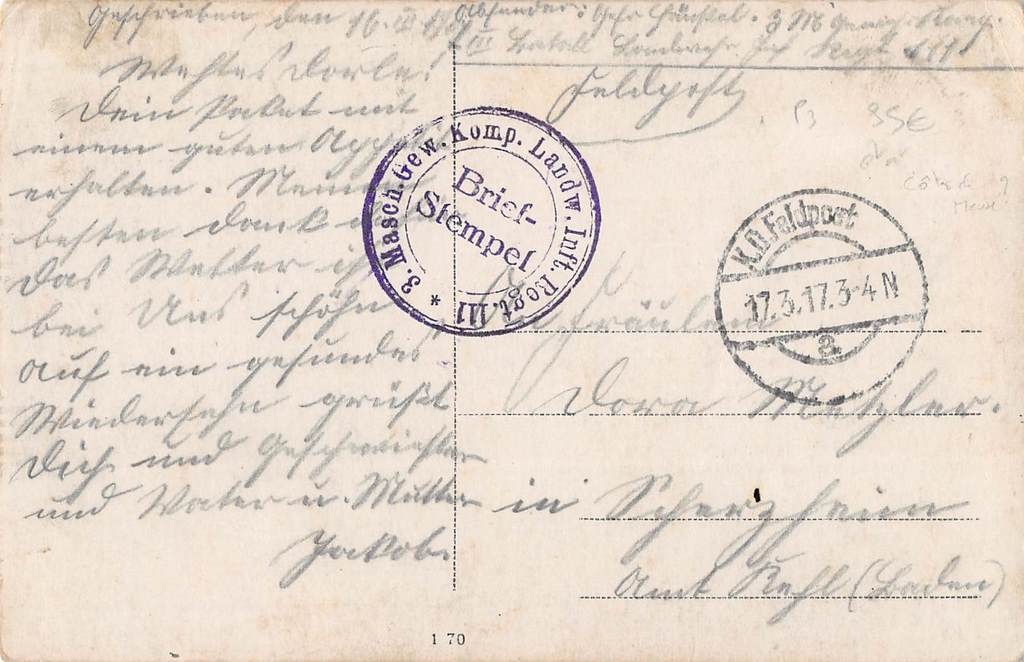 Geschrieben, den 16. III 1917
Absender: Gefr. 3 M Gewehr Komp.
III Batall Landwehr Inf Regt 111
Feldpost
Wehtes Dorle!
Dein Paket mit
einem guten
erhalten. Meinen
besten Dank
das Wetter ist
bei Uns schöhn
auf ein gesundes
Wiedersehn grüßt
Dich und Geschwister
und Vater u. Mutter
Jakob.
3. Masch. Gew. Komp. Landw. Inft. Regt. 111 *
Brief-
Stempel
K.D. Feldpost
17.3.17.3-4N
a
Fräulein
Dora Metzler.
in Scherzheim
Amt Kehl (Baden)
35€
1 70